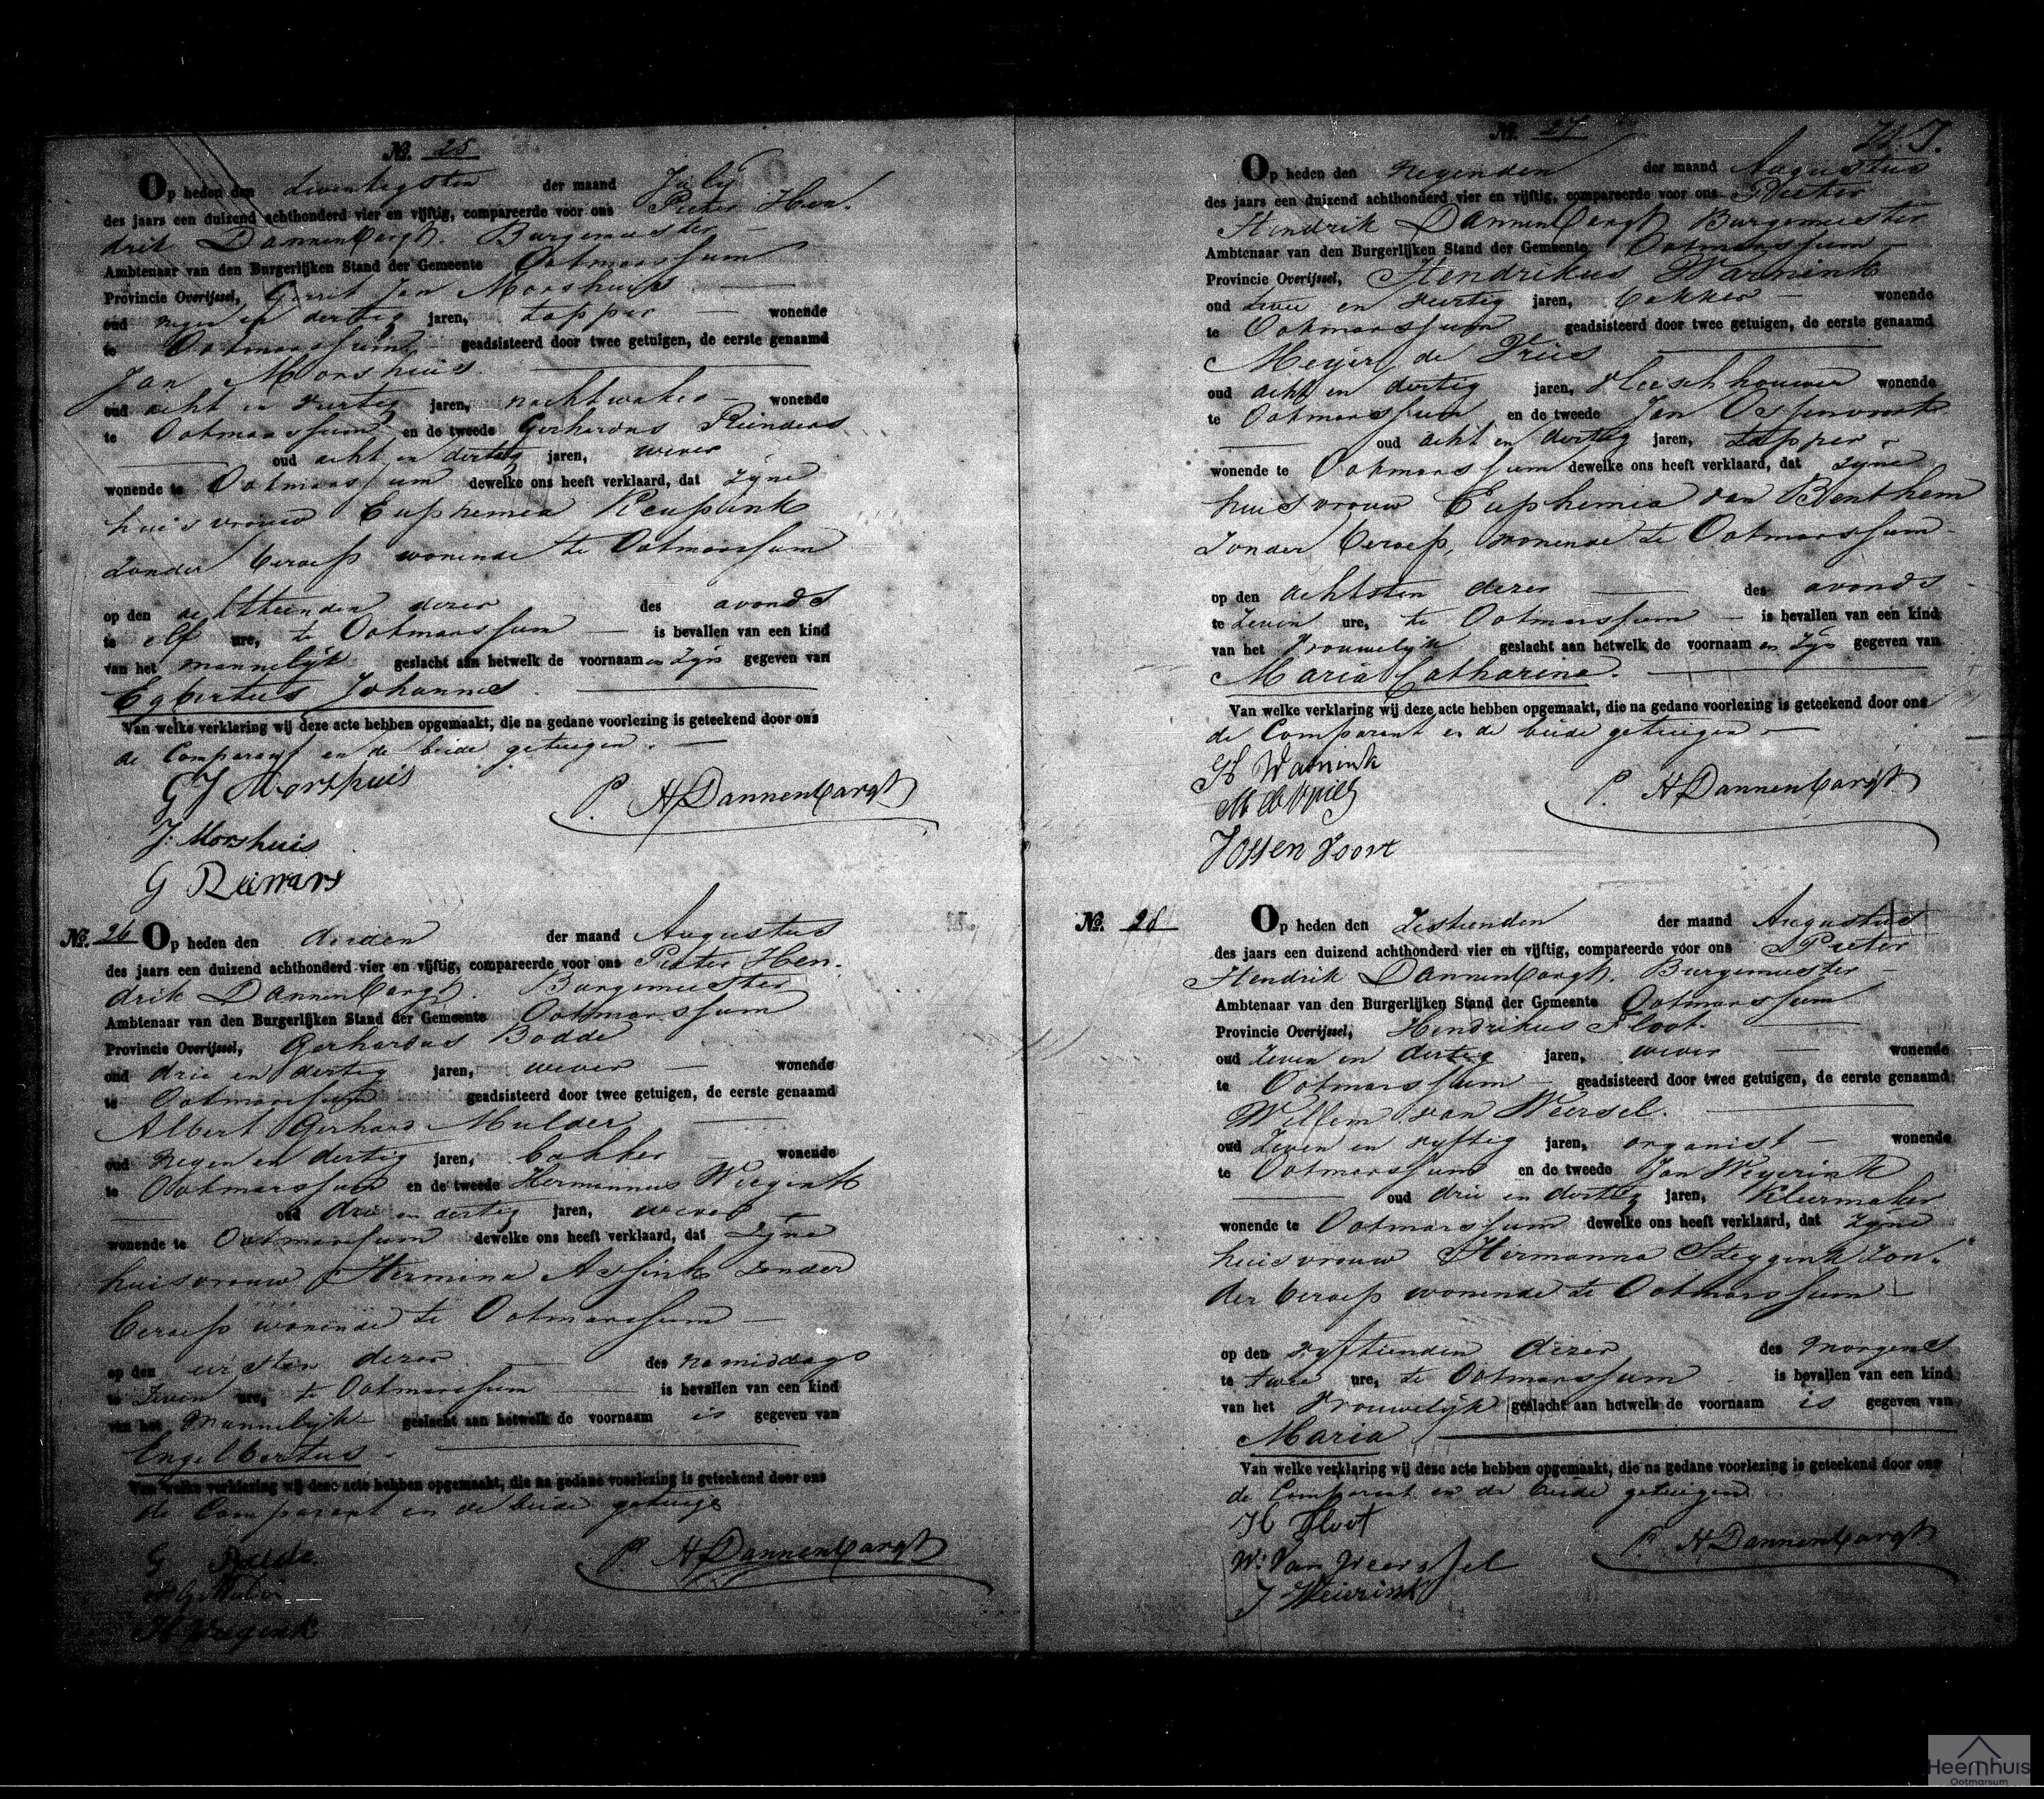 No. 25
Op heden den twentigsten der maand July
des jaars een duizend achthonderd vier en vijftig, compareerde voor ons Pieter Hen-
drik Dannenbargh. Burgemeester
Ambtenaar van den Burgerlijken Stand der Gemeente Ootmarssum
Provincie Overijssel, Gerrit Jan Morshuis
oud negen en dertig jaren, tapper wonende
te Ootmarssum geadsisteerd door twee getuigen, de eerste genaamd
Jan Morshuis.
oud acht en veertig jaren, nachtwaker wonende
te Ootmarssum en de tweede Gerhardus Reinders
oud acht en dertig jaren, wever
wonende te Ootmarssum dewelke ons heeft verklaard, dat zyne
huisvrouw Euphemia
zonder beroep wonende te Ootmarssum
op den achttienden dezer des avonds
te elf ure, te Ootmarssum is bevallen van een kind
van het mannelijk geslacht aan hetwelk de voornaam en zyn gegeven van
Egbertus Johannes.
Van welke verklaring wij deze acte hebben opgemaakt, die na gedane voorlezing is geteekend door ons
de Comparant en de beide getuigen.
G J Morshuis
P. H Dannenbargh
J. Morshuis
G
No. 26 Op heden den derden der maand Augustus
des jaars een duizend achthonderd vier en vijftig, compareerde voor ons Pieter Hen-
drik Dannenbargh. Burgemeester
Ambtenaar van den Burgerlijken Stand der Gemeente Ootmarssum
Provincie Overijssel, Gerhardus Bodde
oud drie en dertig jaren, wever wonende
te Ootmarssum geadsisteerd door twee getuigen, de eerste genaamd
Albert Gerhard Mulder
oud negen en dertig jaren, bakker wonende
te Ootmarssum en de tweede Herminnus Wiegink
oud drie en dertig jaren, wever
wonende te Ootmarssum dewelke ons heeft verklaard, dat zyne
huisvrouw Hermina Assink zonder
beroep wonende te Ootmarssum
op den eersten dezer des namiddags
te zeven ure, te Ootmarssum is bevallen van een kind
van het mannelijk geslacht aan hetwelk de voornaam is gegeven van
Engelbertus.
Van welke verklaring wij deze acte hebben opgemaakt, die na gedane voorlezing is geteekend door ons
de Comparant en de beide getuige
G Bodde.
P. H Dannenbargh
H Wiegink
No. 27
Op heden den negenden der maand Augustus
des jaars een duizend achthonderd vier en vijftig, compareerde voor ons Pieter
Hendrik Dannenbargh Burgemeester
Ambtenaar van den Burgerlijken Stand der Gemeente Ootmarssum
Provincie Overijssel, Hendrikus Warnink
oud twee en veertig jaren, bakker wonende
te Ootmarssum geadsisteerd door twee getuigen, de eerste genaamd
Meijer de Vries
oud acht en dertig jaren, vleeschhouwer wonende
te Ootmarssum en de tweede Jan Ossenvoort
oud acht en dertig jaren, tapper
wonende te Ootmarssum dewelke ons heeft verklaard, dat zyne
huisvrouw Euphemia van Benthem
zonder beroep, wonende te Ootmarssum
op den achtsten dezer des avonds
te zeven ure, te Ootmarssum is bevallen van een kind
van het vrouwelijk geslacht aan hetwelk de voornaam en zyn gegeven van
Maria Catharina.
Van welke verklaring wij deze acte hebben opgemaakt, die na gedane voorlezing is geteekend door ons
de Comparant en de beide getuigen
H Warnink
P. H Dannenbargh
M de Vries
J Ossenvoort
No. 28 Op heden den zestienden der maand Augustus
des jaars een duizend achthonderd vier en vijftig, compareerde voor ons Pieter
Hendrik Dannenbargh. Burgemeester
Ambtenaar van den Burgerlijken Stand der Gemeente Ootmarssum
Provincie Overijssel, Hendrikus Floot.
oud zeven en dertig jaren, wever wonende
te Ootmarssum geadsisteerd door twee getuigen, de eerste genaamd
Willem van Weersel.
oud zeven en vyftig jaren, organist wonende
te Ootmarssum en de tweede Jan Weyerink
oud drie en dertig jaren, kleermaker
wonende te Ootmarssum dewelke ons heeft verklaard, dat zyne
huisvrouw Hermanna Steggink zon-
der beroep wonende te Ootmarssum
op den vyftienden dezer des morgens
te twee ure, te Ootmarssum is bevallen van een kind
van het vrouwelijk geslacht aan hetwelk de voornaam is gegeven van
Maria
Van welke verklaring wij deze acte hebben opgemaakt, die na gedane voorlezing is geteekend door ons
de Comparant en de beide getuigen.
H Floot
P. H Dannenbargh
W: Van Weersel
J Weierink
Heemhuis
Ootmarsum